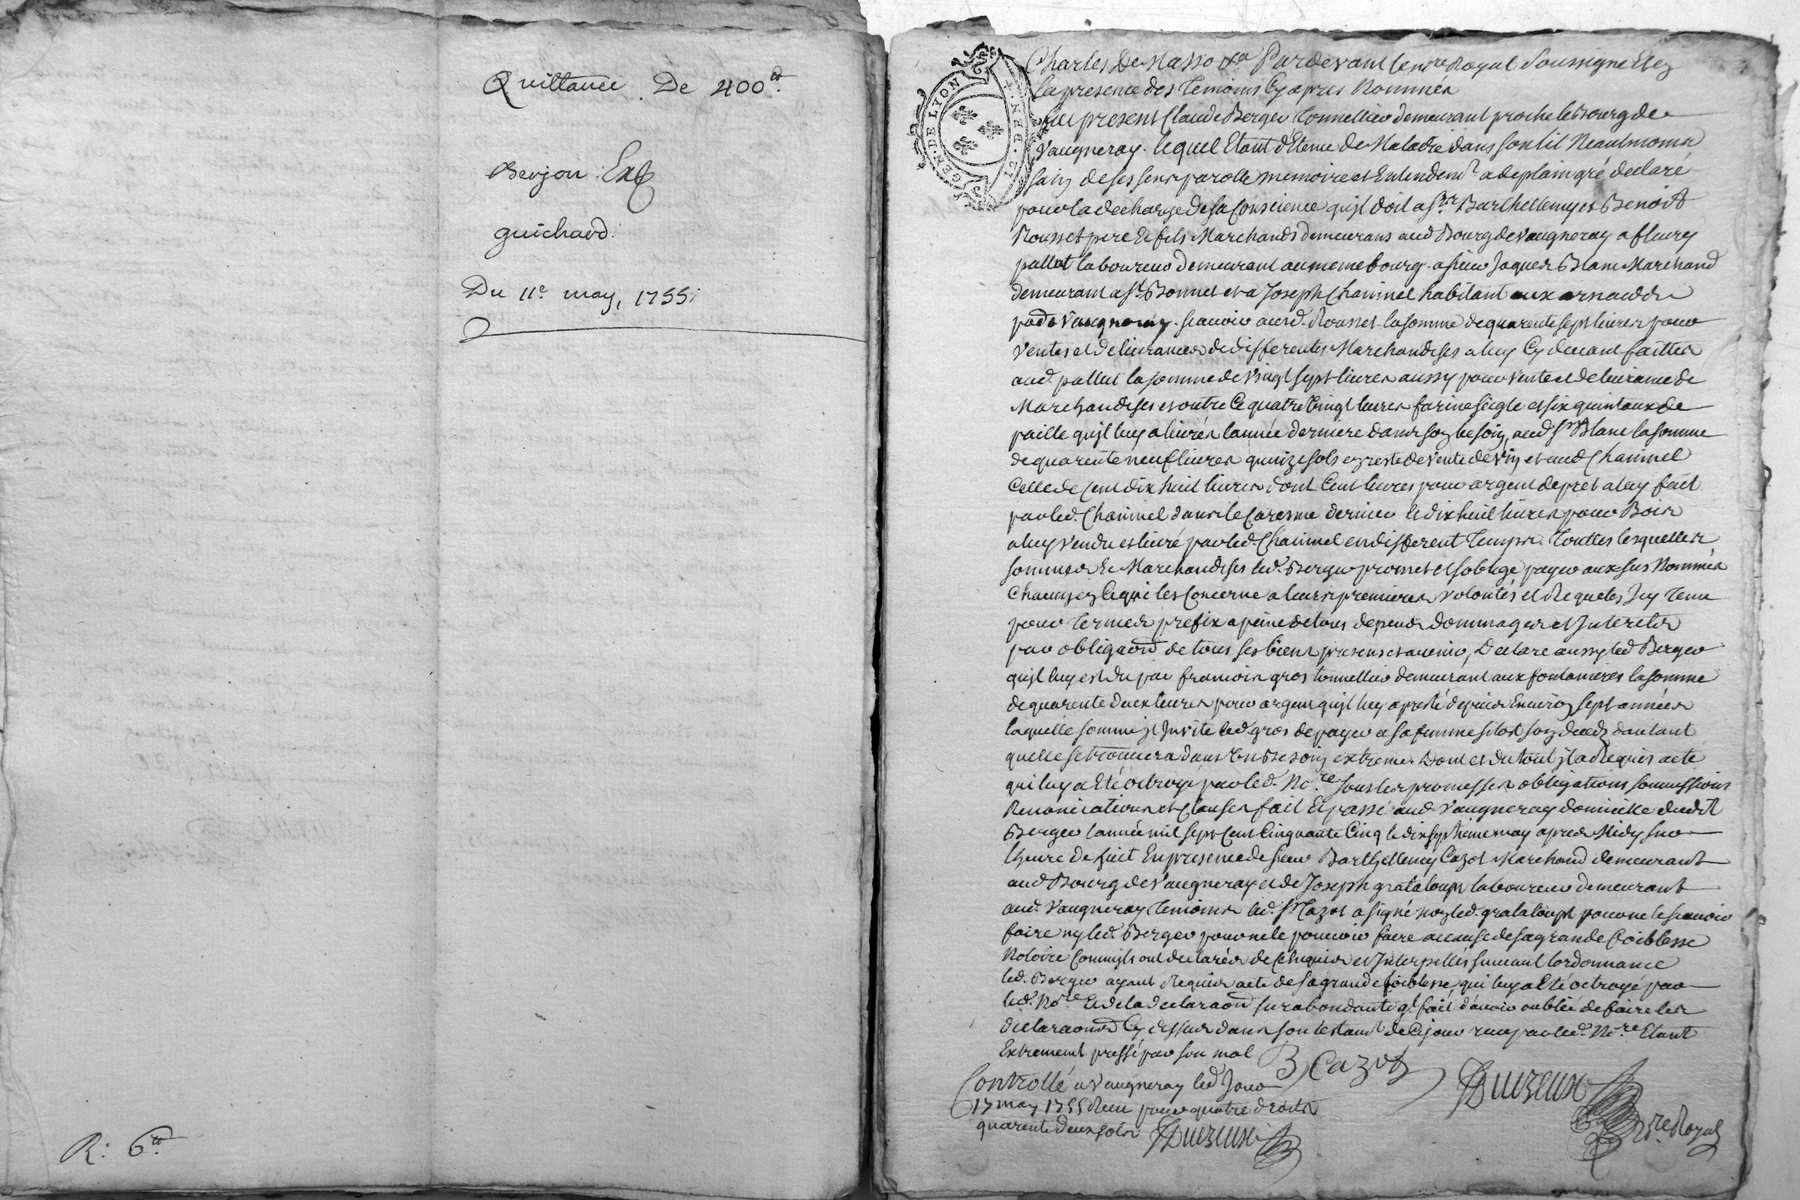 Quittance De 400ᵗᵗ
Berjon
guichard
Du 11ᵉ may, 1755
R: 6ᵗᵗ
GEN. DE LYON
Charges De Pardevant le noʳᵉ Royal Soussigné Et en
la presence des temoins Cy apres Nommés
fut present Claude Berger Tonnellier demeurant proche le Bourg de
Vaugneray. lequel Etant detenu de Maladie dans son lit Neantmoins
sain de ses sens parolle memoire et Entendemᵗ a de plain gré declaré
pour la decharge de sa Conscience qu'jl doit a sʳˢ Barthellemy et Benoist
Rousset pere Et fils Marchands demeurans aud Bourg de Vaugneray a fleury
pallut laboureur demeurant au meme bourg a sieur Jaques Blanc Marchand
demeurant a Sᵗ Bonnet et a Joseph Chanmel habitant aux
de Vaugneray. scavoir ausd. Rousset la somme de quarente sept livres pour
Ventes et delivrances de differentes Marchandises a luy Cy devant faittes
aud. pallut la somme de Vingt sept livres aussy pour vente et delivrance de
Marchandises et outre Ce quatre Vingt livres farine seigle et six quintaux de
paille qu'jl luy a livrés l'année derniere dans son besoin, aud sʳ Blanc la somme
de quarente neuf livres quinze sols en reste de vente de vin et aud Chanmel
Celle de Cent dix huit livres dont Cent livres pour argent de pret a luy fait
par led. Chanmel dans le Caresme dernier et dix huit livres pour Bois
a luy vendu et livré par led. Chanmel en different temps. Touttes lesquelles
sommes Et Marchandises led. Berger promet et s'oblige payer aux sus Nommés
Chacun en Ce qui les Concerne a leurs premieres volontés et Requetes
pour termes prefix a peine de tous depends dommages et Interets
par obligaōn de tous ses biens presens et avenir, Declare aussy led Berger
qu'jl luy est du par francois gros tonnellier demeurant aux fontanieres la somme
de quarente deux livres pour argent qu'jl luy a presté depuis Environ sept années
laquelle somme jl Invite led. gros de payer a sa femme sitost son decedz d'autant
quelle se trouvera dans un Besoin extreme. Dont et du tout jl a Requis acte
qui luy a Eté octroyé par led. Noʳᵉ sous les promesses obligations soumissions
Renonciations et Clauses fait Et passé aud Vaugneray domicille dudit
Berger l'année mil sept Cent Cinquante Cinq le dix septieme may apres Midy sur
l'heure de huit En presence de sieur Barthellemy Cazot Marchand demeurant
aud Bourg de Vaugneray et de Joseph grataloup laboureur demeurant
aud. Vaugneray temoins led. sʳ Cazot a signé non led. grataloup pour ne le scavoir
faire ny led. Berger pour ne le pouvoir faire a cause de sa grande foiblesse
Notoire Comm'jls ont declarés de Ce Enquis et Interpellés suivant l'ordonnance
led. Berger ayant Requis acte de sa grande foiblesse qui luy a Eté octroyé par
led. Noʳᵉ Et de la declaraōn surabondante qᵗ fait d'avoir oublié de faire les
declaraōns Cy dessus dans son testamᵗ de Ce jour reçu par led. Noʳᵉ Etant
Extremement pressé par son mal
B Cazot
Controllé a Vaugneray led. Jour
17 may 1755 Reçu pour quatre droits
quarente deux sols
Noʳᵉ Royal